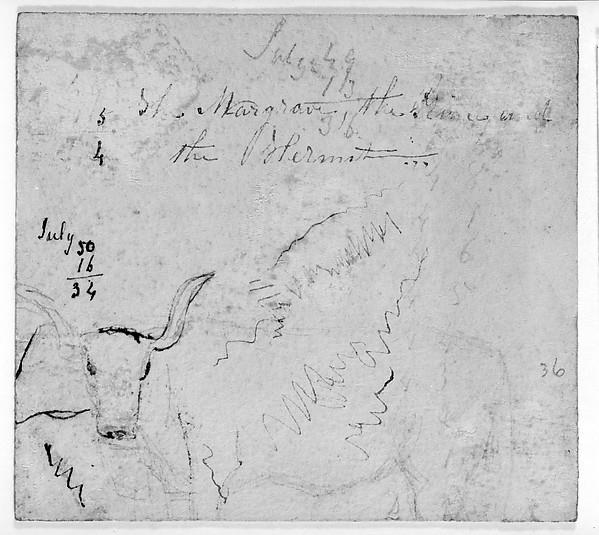 July 49
13
36
5 The Margrave, the Prince and
4 the Hermit...
July 50
16
34
36